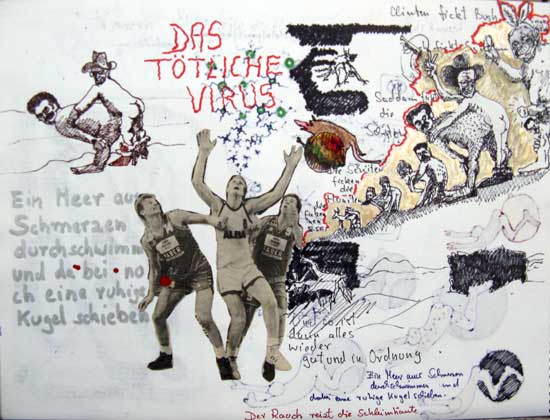 DAS
TÖTLICHE
VIRUS
Clinton fickt Busch
Saddam
die
die Schiiten
ficken
die
Ein Meer aus
Schmerzen
durchschwimm
und da bei no
ch eine ruhige
Kugel schieben
ALBA
Und so ist
dann alles
wieder
gut und in Ordnung
Ein Meer aus Schmerzen
durchschwimmen und
dabei eine ruhige Kugel schieben.
Der Rauch reist die Schleimhäute